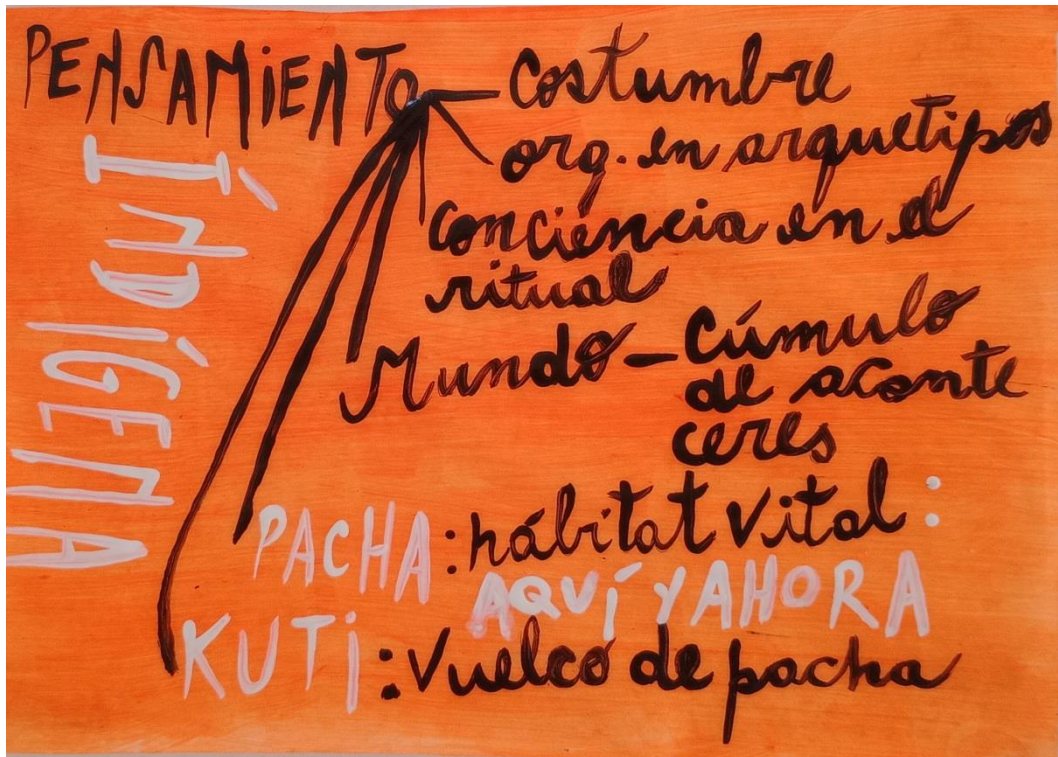 PENSAMiENTO
ÍNDÍGENA
Costumbre
org. en arquetipos
conciéncia en el
ritual
Mundo - Cúmulo
de aconte
ceres
PACHA: hábitat Vital:
AQUÍ Y AHORA
KUTi: Vuelco de pacha